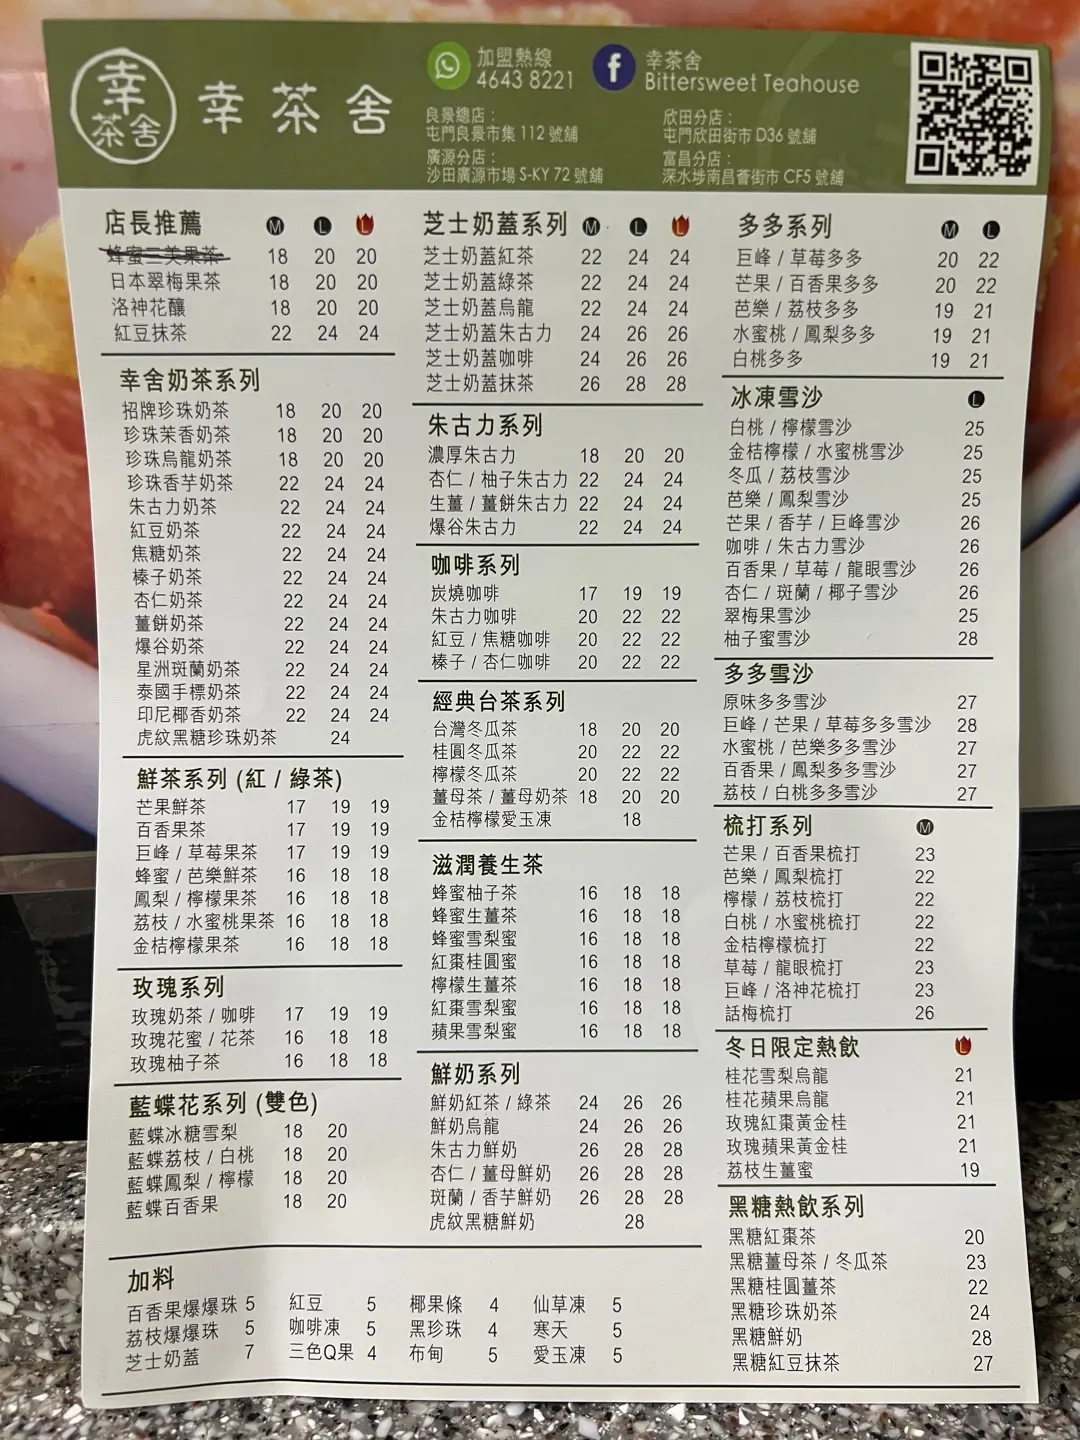 幸茶舍
幸茶舍
加盟熱線
4643 8221
幸茶舍
Bittersweet Teahouse
良景總店：
屯門良景市集 112 號舖
廣源分店：
沙田廣源市場 S-KY 72 號舖
欣田分店：
屯門欣田街市 D36 號舖
富昌分店：
深水埗南昌薈街市 CF5 號舖
店長推薦 M L L
蜂蜜三美果茶 18 20 20
日本翠梅果茶 18 20 20
洛神花釀 18 20 20
紅豆抹茶 22 24 24
幸舍奶茶系列
招牌珍珠奶茶 18 20 20
珍珠茉香奶茶 18 20 20
珍珠烏龍奶茶 18 20 20
珍珠香芋奶茶 22 24 24
朱古力奶茶 22 24 24
紅豆奶茶 22 24 24
焦糖奶茶 22 24 24
榛子奶茶 22 24 24
杏仁奶茶 22 24 24
薑餅奶茶 22 24 24
爆谷奶茶 22 24 24
星洲斑蘭奶茶 22 24 24
泰國手標奶茶 22 24 24
印尼椰香奶茶 22 24 24
虎紋黑糖珍珠奶茶 24
鮮茶系列 (紅 / 綠茶)
芒果鮮茶 17 19 19
百香果茶 17 19 19
巨峰 / 草莓果茶 17 19 19
蜂蜜 / 芭樂鮮茶 16 18 18
鳳梨 / 檸檬果茶 16 18 18
荔枝 / 水蜜桃果茶 16 18 18
金桔檸檬果茶 16 18 18
玫瑰系列
玫瑰奶茶 / 咖啡 17 19 19
玫瑰花蜜 / 花茶 16 18 18
玫瑰柚子茶 16 18 18
藍蝶花系列 (雙色)
藍蝶冰糖雪梨 18 20
藍蝶荔枝 / 白桃 18 20
藍蝶鳳梨 / 檸檬 18 20
藍蝶百香果 18 20
芝士奶蓋系列 M L L
芝士奶蓋紅茶 22 24 24
芝士奶蓋綠茶 22 24 24
芝士奶蓋烏龍 22 24 24
芝士奶蓋朱古力 24 26 26
芝士奶蓋咖啡 24 26 26
芝士奶蓋抹茶 26 28 28
朱古力系列
濃厚朱古力 18 20 20
杏仁 / 柚子朱古力 22 24 24
生薑 / 薑餅朱古力 22 24 24
爆谷朱古力 22 24 24
咖啡系列
炭燒咖啡 17 19 19
朱古力咖啡 20 22 22
紅豆 / 焦糖咖啡 20 22 22
榛子 / 杏仁咖啡 20 22 22
經典台茶系列
台灣冬瓜茶 18 20 20
桂圓冬瓜茶 20 22 22
檸檬冬瓜茶 20 22 22
薑母茶 / 薑母奶茶 18 20 20
金桔檸檬愛玉凍 18
滋潤養生茶
蜂蜜柚子茶 16 18 18
蜂蜜生薑茶 16 18 18
蜂蜜雪梨蜜 16 18 18
紅棗桂圓蜜 16 18 18
檸檬生薑茶 16 18 18
紅棗雪梨蜜 16 18 18
蘋果雪梨蜜 16 18 18
鮮奶系列
鮮奶紅茶 / 綠茶 24 26 26
鮮奶烏龍 24 26 26
朱古力鮮奶 26 28 28
杏仁 / 薑母鮮奶 26 28 28
斑蘭 / 香芋鮮奶 26 28 28
虎紋黑糖鮮奶 28
多多系列 M L
巨峰 / 草莓多多 20 22
芒果 / 百香果多多 20 22
芭樂 / 荔枝多多 19 21
水蜜桃 / 鳳梨多多 19 21
白桃多多 19 21
冰凍雪沙 L
白桃 / 檸檬雪沙 25
金桔檸檬 / 水蜜桃雪沙 25
冬瓜 / 荔枝雪沙 25
芭樂 / 鳳梨雪沙 25
芒果 / 香芋 / 巨峰雪沙 26
咖啡 / 朱古力雪沙 26
百香果 / 草莓 / 龍眼雪沙 26
杏仁 / 斑蘭 / 椰子雪沙 26
翠梅果雪沙 25
柚子蜜雪沙 28
多多雪沙
原味多多雪沙 27
巨峰 / 芒果 / 草莓多多雪沙 28
水蜜桃 / 芭樂多多雪沙 27
百香果 / 鳳梨多多雪沙 27
荔枝 / 白桃多多雪沙 27
梳打系列 M
芒果 / 百香果梳打 23
芭樂 / 鳳梨梳打 22
檸檬 / 荔枝梳打 22
白桃 / 水蜜桃梳打 22
金桔檸檬梳打 22
草莓 / 龍眼梳打 23
巨峰 / 洛神花梳打 23
話梅梳打 26
冬日限定熱飲 L
桂花雪梨烏龍 21
桂花蘋果烏龍 21
玫瑰紅棗黃金桂 21
玫瑰蘋果黃金桂 21
荔枝生薑蜜 19
黑糖熱飲系列
黑糖紅棗茶 20
黑糖薑母茶 / 冬瓜茶 23
黑糖桂圓薑茶 22
黑糖珍珠奶茶 24
黑糖鮮奶 28
黑糖紅豆抹茶 27
加料
百香果爆爆珠 5 紅豆 5 椰果條 4 仙草凍 5
荔枝爆爆珠 5 咖啡凍 5 黑珍珠 4 寒天 5
芝士奶蓋 7 三色Q果 4 布甸 5 愛玉凍 5